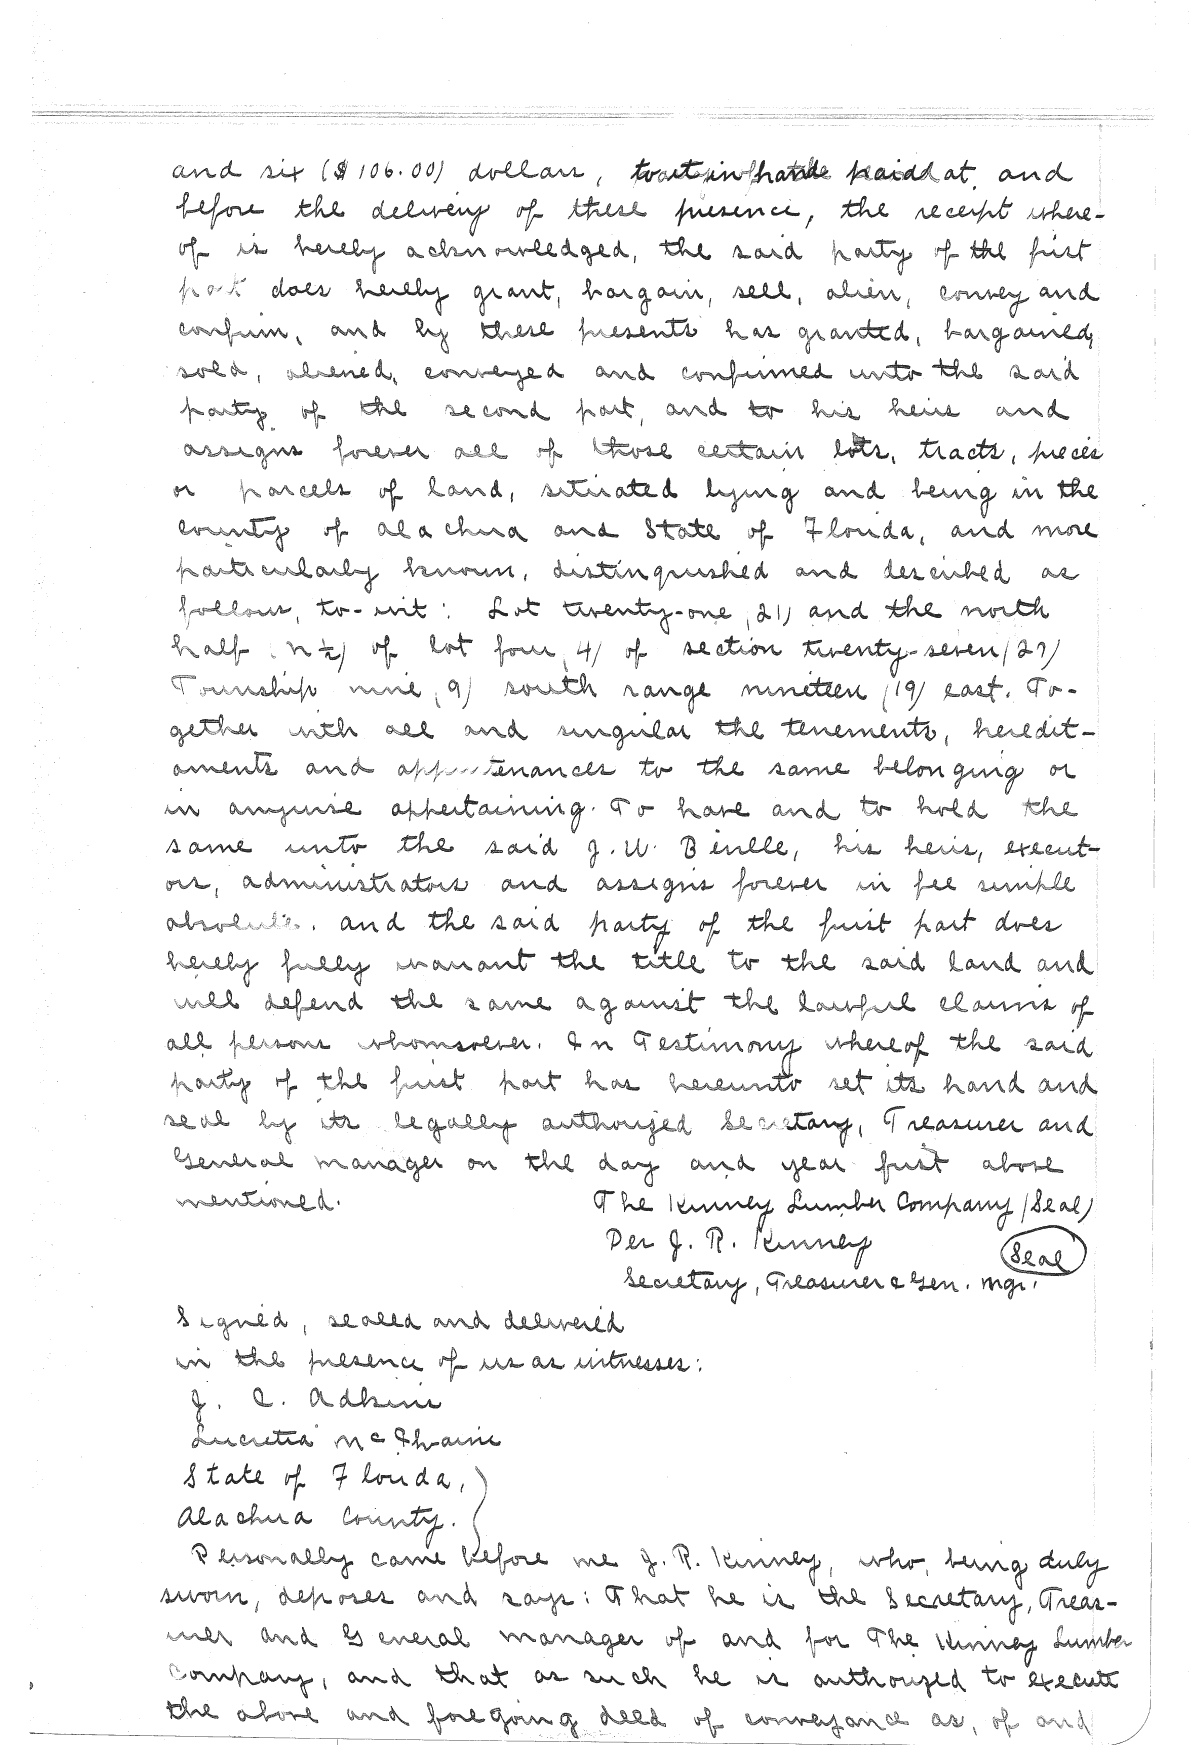 and six ($106.00) dollars, to it in hand paid at and
before the delivery of these presence, the receipt where-
of is hereby acknowledged, the said party of the first
part does hereby grant, bargain, sell, alien, convey and
confirm, and by these presents has granted, bargained,
sold, aliened, conveyed and confirmed unto the said
party of the second part, and to his heirs and
assigns forever all of those certain lots, tracts, pieces
or parcels of land, situated lying and being in the
county of Alachua and State of Florida, and more
particularly known, distinguished and described as
follows, to-wit: Lot twenty-one (21) and the north
half (N½) of lot four (4) of section twenty-seven (27)
Township nine (9) south range nineteen (19) east. To-
gether with all and singular the tenements, heredit-
aments and appurtenances to the same belonging or
in anywise appertaining. To have and to hold the
same unto the said J. W. his heirs, execut-
ors, administrators and assigns forever in fee simple
absolute. And the said party of the first part does
hereby fully warrant the title to the said land and
will defend the same against the lawful claims of
all persons whomsoever. In Testimony whereof the said
party of the first part has hereunto set its hand and
seal by its legally authorized Secretary, Treasurer and
General manager on the day and year first above
mentioned. The Kinney Lumber Company (Seal)
Per J. R. Kinney (Seal)
Secretary, Treasurer & Gen. Mgr.
Signed, sealed and delivered
in the presence of us as witnesses:
J. C. Adkins
Lucretia
State of Florida,
Alachua County.
Personally came before me J. R. Kinney, who, being duly
sworn, deposes and says: That he is the Secretary, Treas-
urer and General manager of and for The Kinney Lumber
Company, and that as such he is authorized to execute
the above and foregoing deed of conveyance as, of and